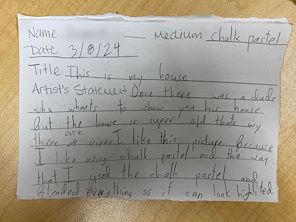 Name Medium chalk pastel
Date 3/8/24
Title This is my house
Artist's Statement Once there was a dude
who whants to show you his house
but the house is super old thats wy
there are vines I like this picture because
I like using chalk pastel and the way
that I used the chalk pastel and
blended everything so it can look